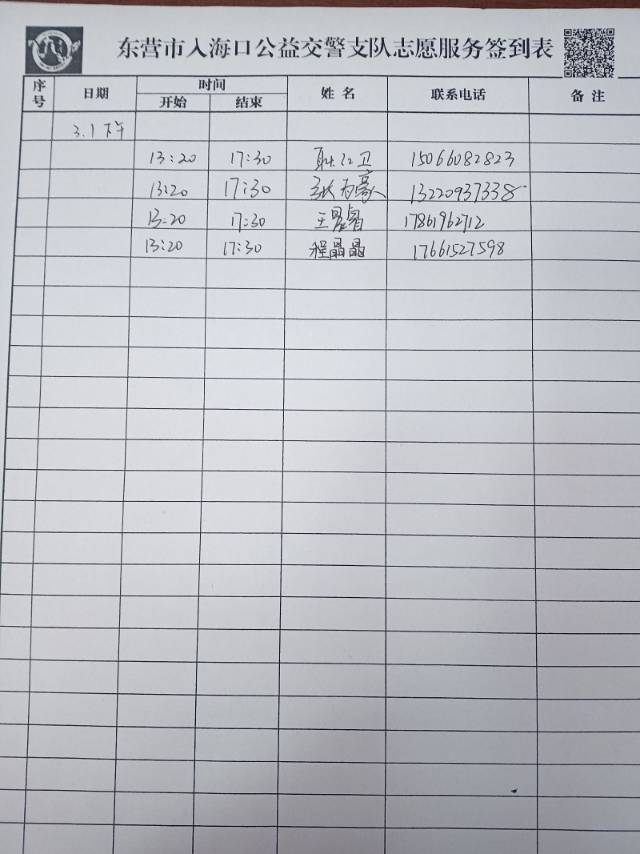 东营市入海口公益交警支队志愿服务签到表
序号 日期 时间 姓名 联系电话 备注
开始 结束
3.1下午
13:20 17:30 耿红卫 15066082823
13:20 17:30 张为豪 13220937338
13:20 17:30 王 17861962712
13:20 17:30 程晶晶 17661527598